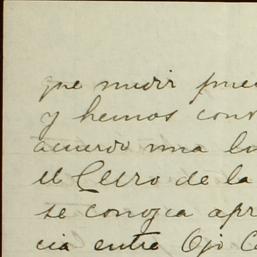 que medir pue
y hemos conv
acuerdo una lo
el Cerro de la
se conozca apr
cia entre Ojo C